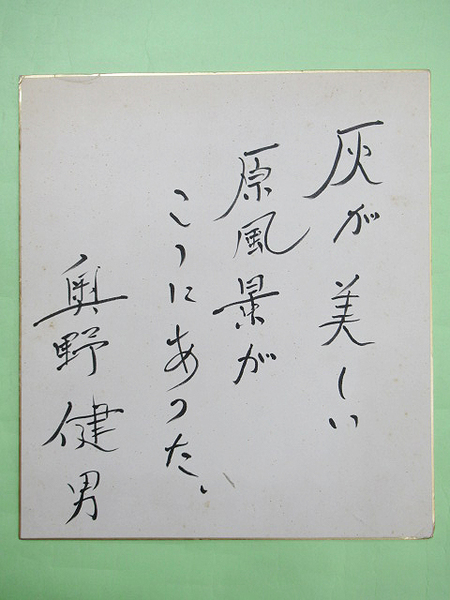 灰が美しい
原風景が
こゝにあった。
奥野健男